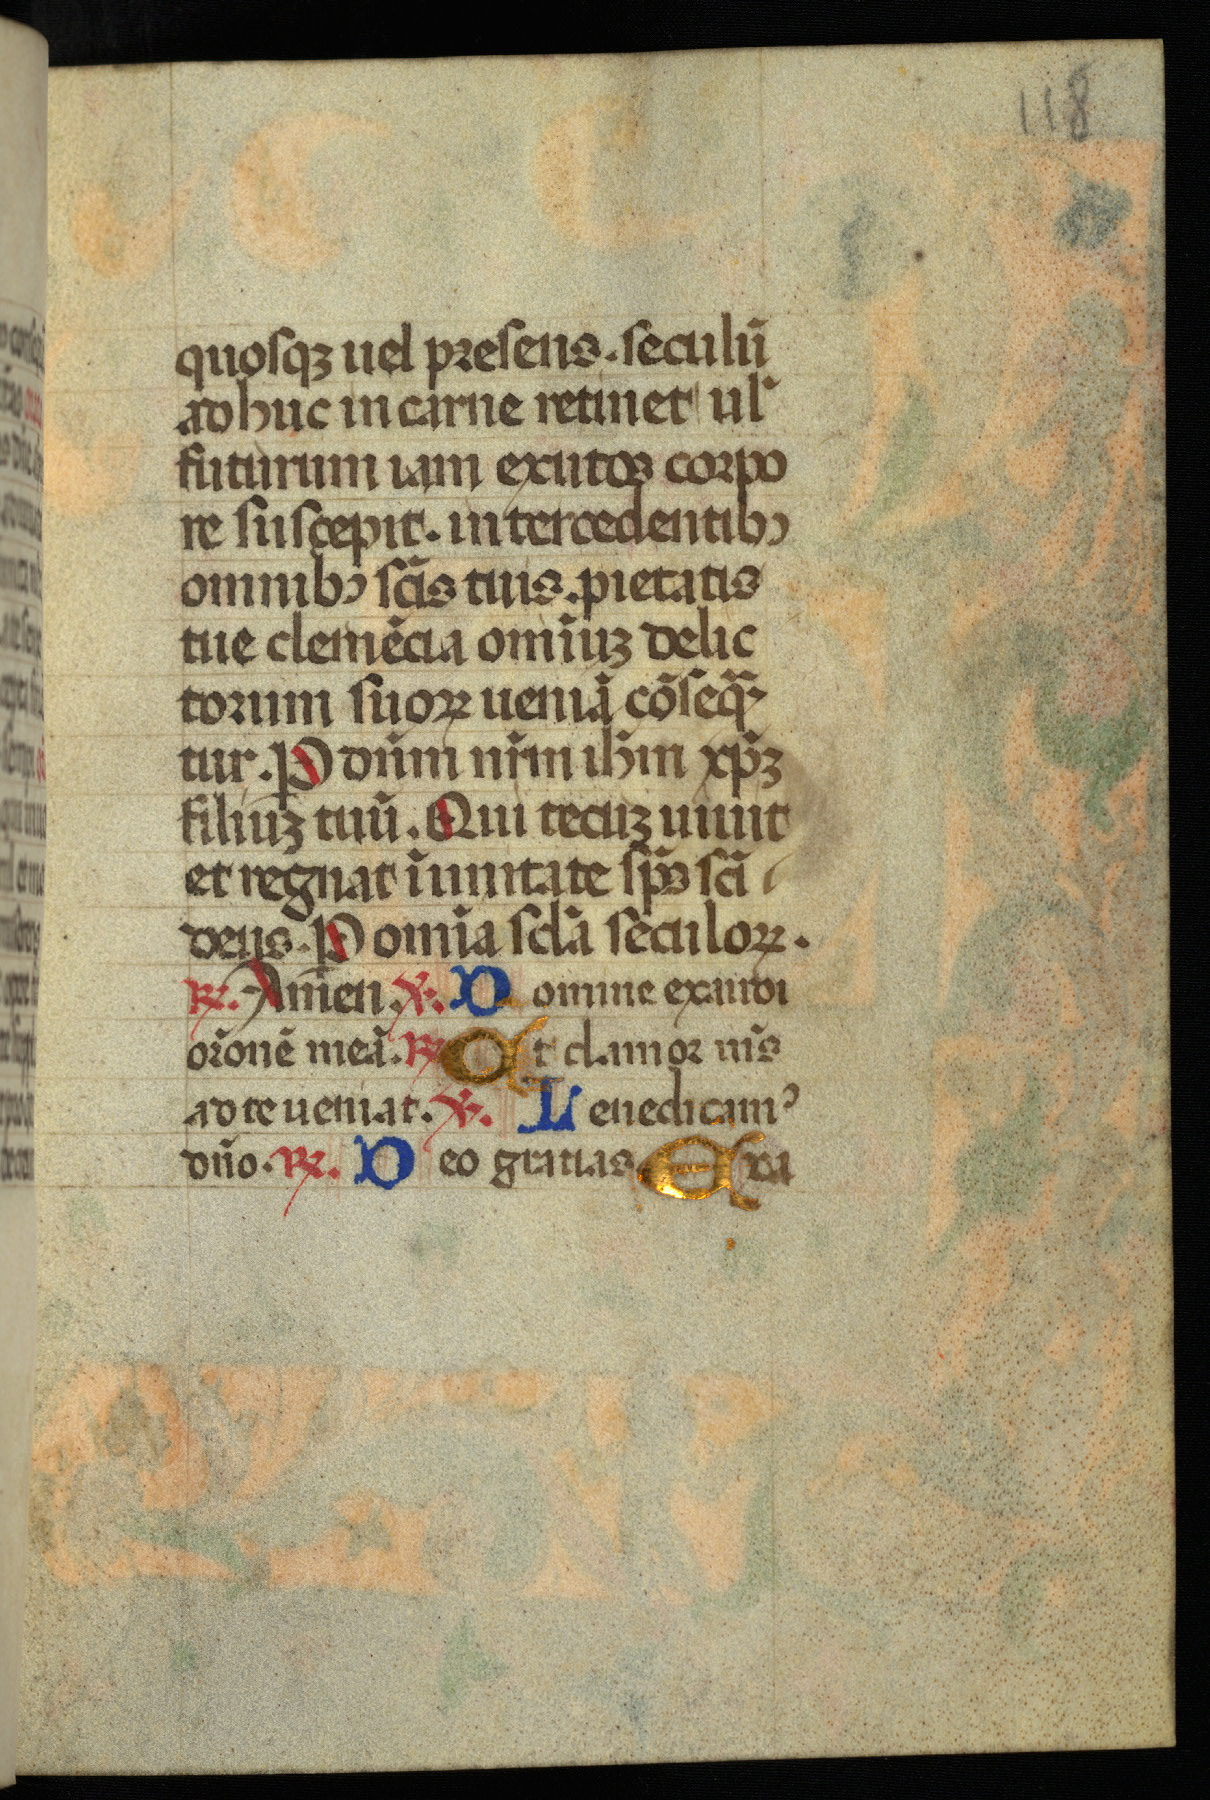 118
quosqꝫ uel presens. seculū
adhuc in carne retinet ul'
futurum iam exutos corpo
re suscepit. intercedentibꝰ
omnibꝰ sc̄is tuis. pietatis
tue clemēcia omīuꝫ delic
torum suoꝝ ueniā cōseq̄
tur. P dūm nr̄m ih̄m xp̄ꝫ
filiuꝫ tuū. Qui tecuꝫ uiuit
et regnat ī unitate sp̄s sc̄i
deus. P omīa scl̄a seculoꝝ.
℟. Am̄en. ℣. Domine exaudi
or̄onē meā. ℟. Et clamor m̄s
ad te ueniat. ℣. Benedicamꝰ
dn̄o. ℟. Deo gratias. Exa